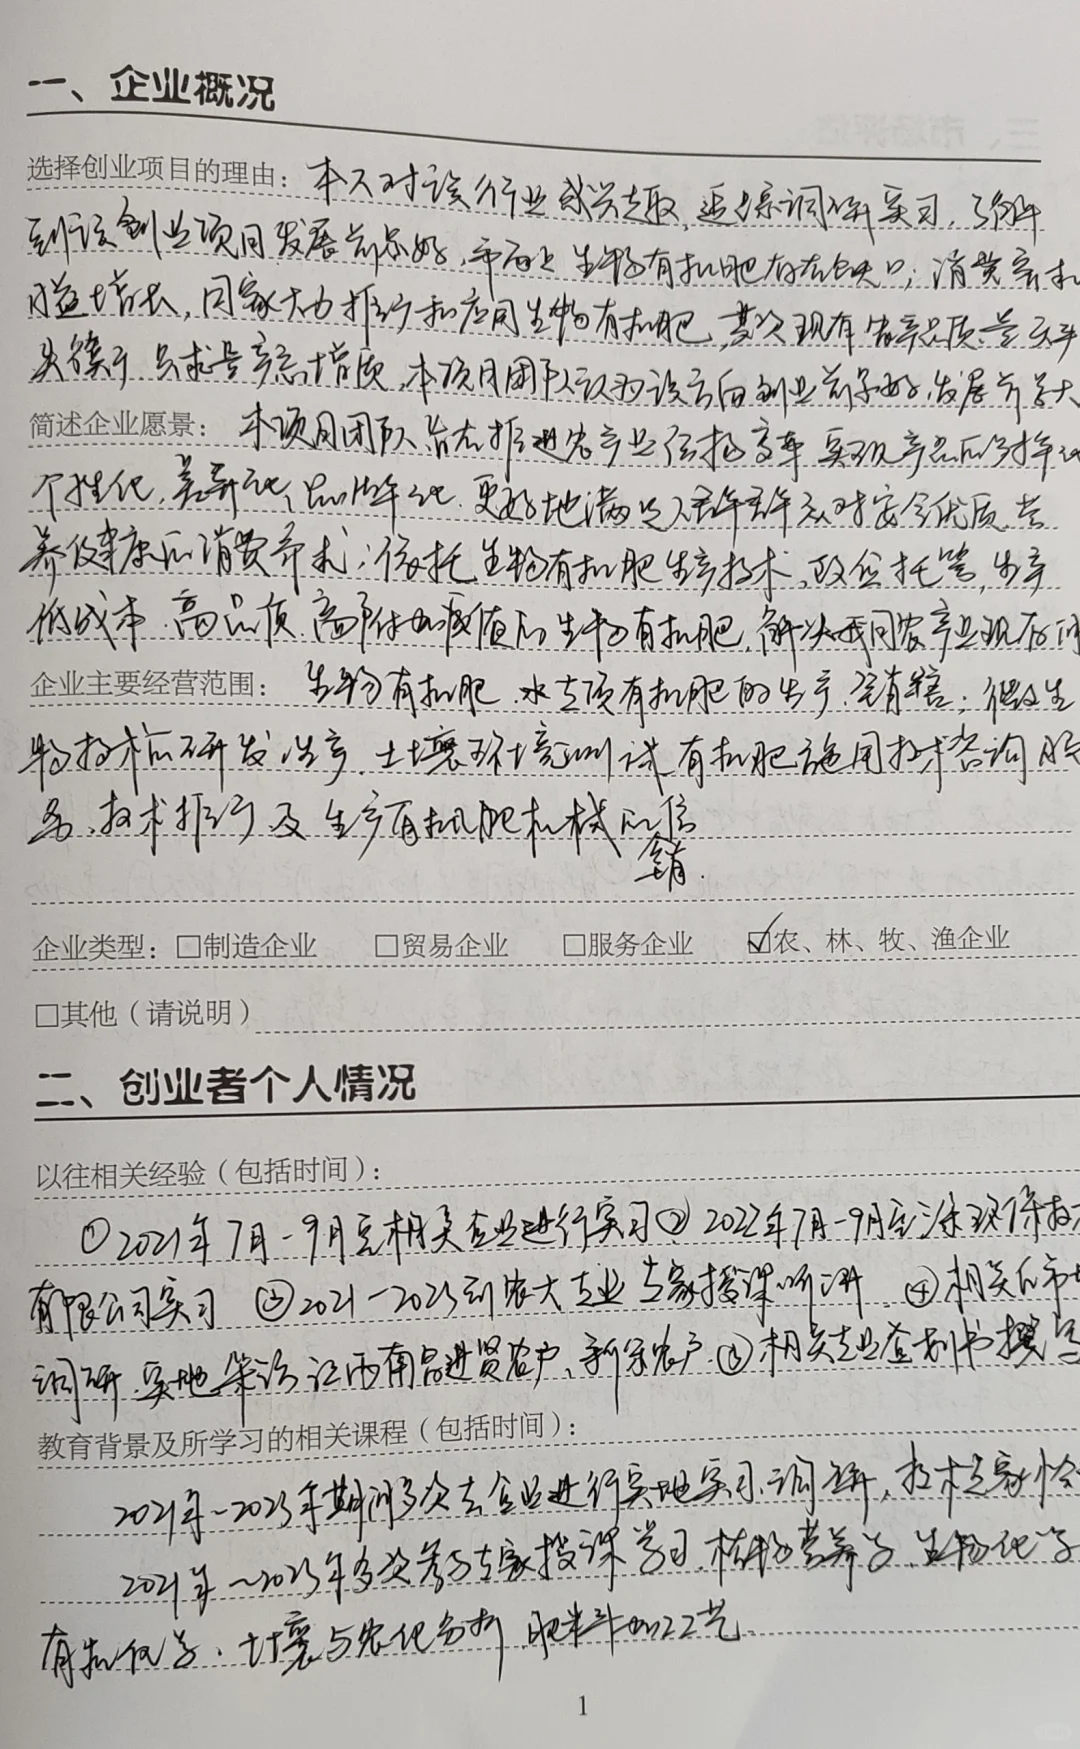 一、企业概况
选择创业项目的理由：本人对该行业感兴趣，追踪调研实习，了解
到该创业项目发展前景好，市面上生物有机肥存在缺口；消费需求
日益增长，国家大力推行和应用生物有机肥，其次现有省产品质量
只求告产忘增质，本项目团队认为该方向创业前景好，发展前景大
简述企业愿景：本项目团队旨在推进农产业信息高率实现产品的多样化
个性化，差异化，品牌化，更好地满足人对安全优质营
养健康的消费需求；依托生物有机肥生产技术，政企托管，生产
低成本、高品质、高附加值的生物有机肥，解决我国农产业现存问
企业主要经营范围：生物有机肥、水专项有机肥的生产、销售；微生
物技术的研发生产、土壤环境测试、有机肥施用技术咨询服
务、技术推行及生产有机肥机械的
销
企业类型：□制造企业 □贸易企业 □服务企业 ☑农、林、牧、渔企业
□其他（请说明）
二、创业者个人情况
以往相关经验（包括时间）：
①2021年7月-9月在相关企业进行实习②2022年7月-9月在环保技
有限公司实习 ③2021-2023到农大专业专家授课听讲 ④相关的市场
调研，实地采访江西南昌进贤农户、新余农户、⑤相关专业计划书撰写
教育背景及所学习的相关课程（包括时间）：
2021年-2023年期间多次去企业进行实地实习、调研，技术专家
2021年～2023年多次参与专家授课学习，植物营养学、生物化学
有机化学、土壤与农化分析、肥料加工工艺
1